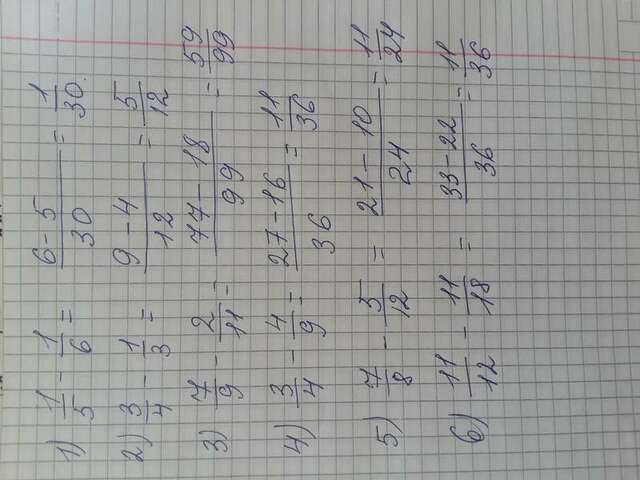 1) 1/5 - 1/6 = (6-5)/30 = 1/30.
2) 3/4 - 1/3 = (9-4)/12 = 5/12
3) 7/9 - 2/11 = (77-18)/99 = 59/99
4) 3/4 - 4/9 = (27-16)/36 = 11/36
5) 7/8 - 5/12 = (21-10)/24 = 11/24
6) 11/12 - 11/18 = (33-22)/36 = 11/36